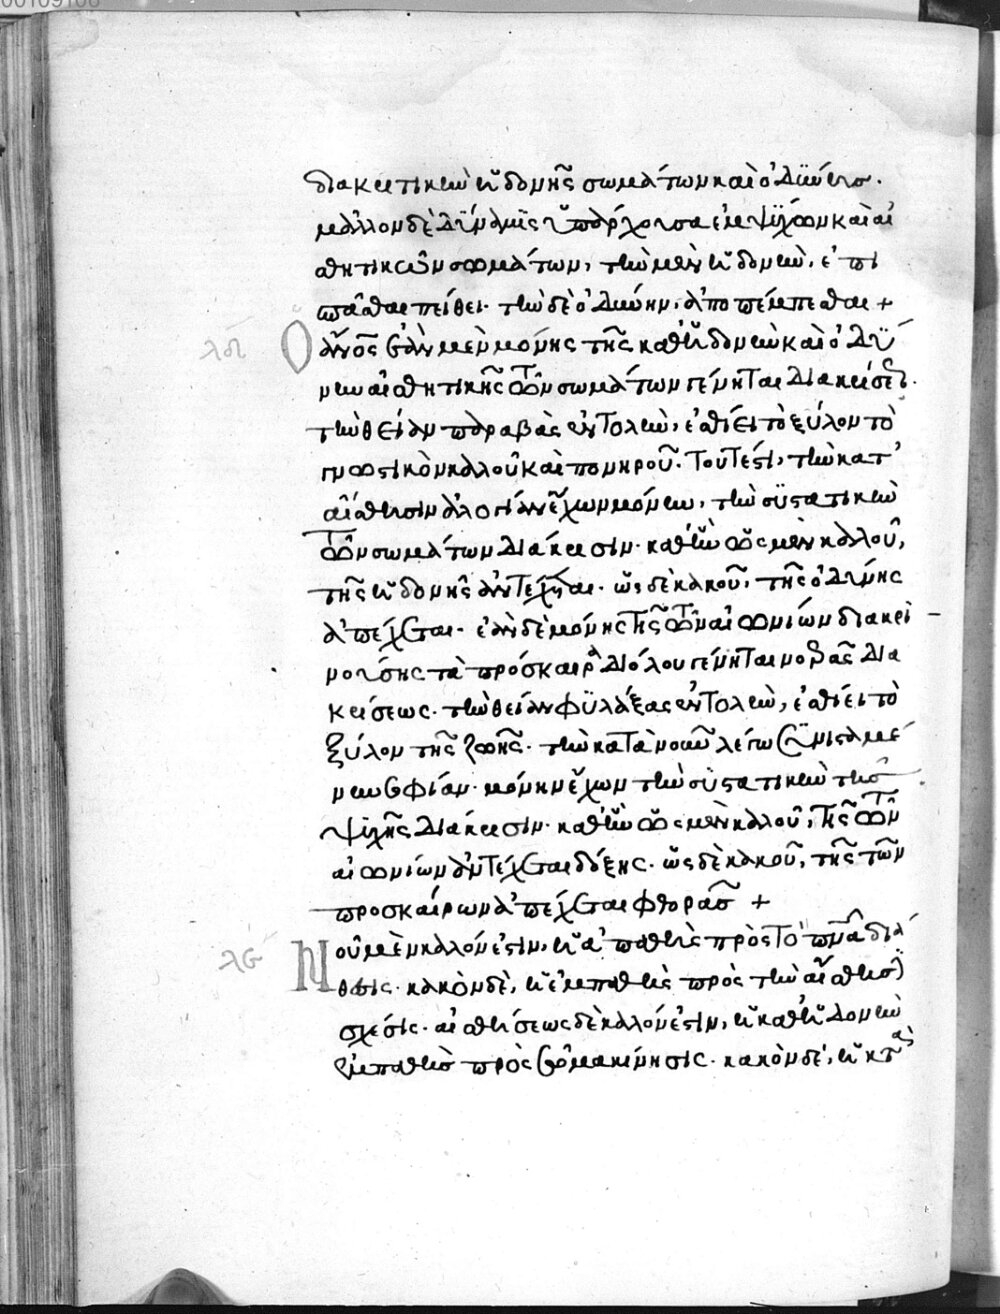 διακριτικὴν ἡδονῆς σωμάτων καὶ ὀδύνης.
μᾶλλον δὲ δύναμις ὑπάρχουσα ἐμψύχων καὶ αἰ
σθητικῶν σωμάτων, τὴν μὲν ἡδονὴν, ἐπι
σπᾶσθαι πείθει· τὴν δὲ ὀδύνην, ἀποπέμπεσθαι +
λδ Ὁ ἄνος ἐὰν μὲν μόνης τῆς καθ' ἡδονὴν καὶ ὀδύ
νην αἰσθητικῆς τῶν σωμάτων γένηται διακρίσεως.
τὴν θείαν παραβὰς ἐντολὴν, ἐσθίει τὸ ξύλον τὸ
γνωστικὸν καλοῦ καὶ πονηροῦ. τουτέστι, τὴν κατ'
αἴσθησιν ἀλογίαν ἔχων μόνην, τὴν συστατικὴν
τῶν σωμάτων διάκρισιν. καθ' ἣν ὡς μὲν καλοῦ,
τῆς ἡδονῆς ἀντέχεται. ὡς δὲ κακοῦ, τῆς ὀδύνης
ἀπέχεται. ἐὰν δὲ μόνης τῆς τῶν αἰωνίων διακρι
νούσης τὰ πρόσκαιρα διόλου γένηται νοερᾶς δια
κρίσεως. τὴν θείαν φυλάξας ἐντολὴν, ἐσθίει τὸ
ξύλον τῆς ζωῆς. τὴν κατὰ νοῦν λέγω συνισταμέ
νην σοφίαν. μόνην ἔχων τὴν συστατικὴν τῆς
ψυχῆς διάκρισιν. καθ' ἣν ὡς μὲν καλοῦ, τῆς τῶν
αἰωνίων ἀντέχεται δόξης. ὡς δὲ κακοῦ, τῆς τῶν
προσκαίρων ἀπέχεται φθορᾶς +
λε Νοῦ μὲν καλόν ἐστιν, ἡ ἀπαθὴς πρὸς τὸ πνα διά
θεσις. κακὸν δὲ, ἡ ἐμπαθὴς πρὸς τὴν αἴσθησιν
σχέσις. αἰσθήσεως δὲ καλόν ἐστιν, ἡ καθ' ἡδονὴν
ἐμπαθὴς πρὸς σῶμα κίνησις. κακὸν δὲ, ἡ κατὰ